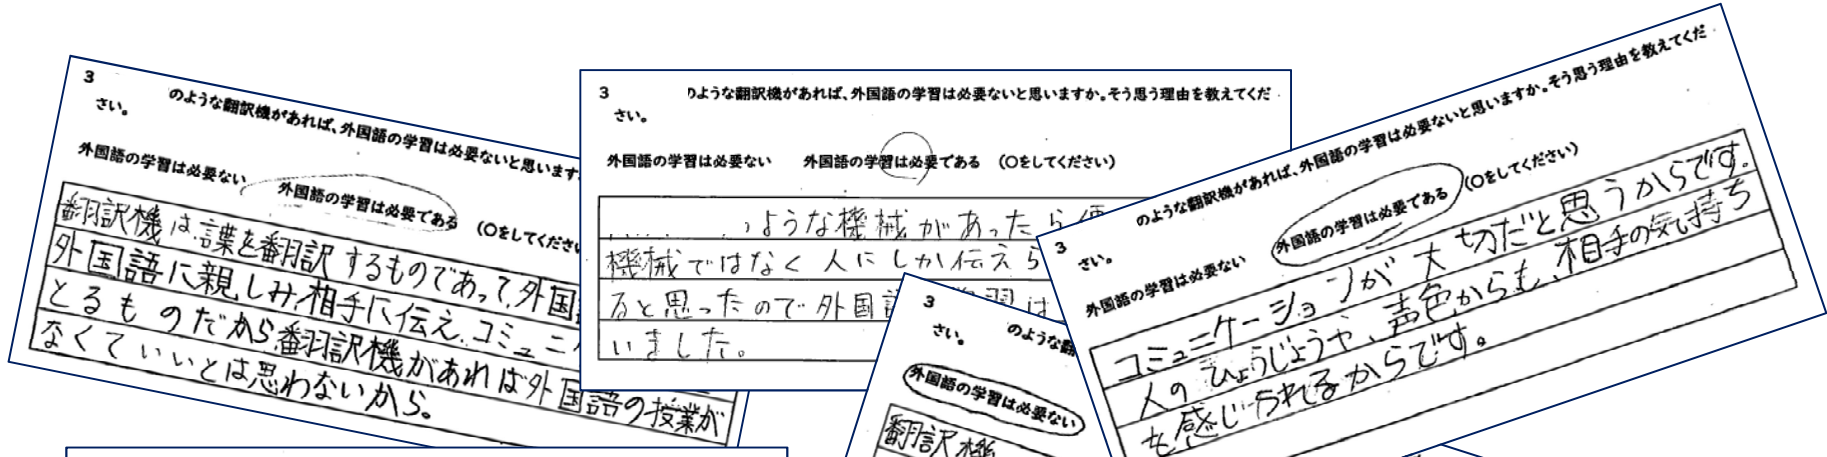 3
のような翻訳機があれば、外国語の学習は必要ないと思います
さい。
外国語の学習は必要ない 外国語の学習は必要である (〇をしてください
翻訳機は言葉を翻訳するものであって、外国
外国語に親しみ、相手に伝え、コミュニ
とるものだから翻訳機があれば外国語の授業が
なくていいとは思わないから。
3
のような翻訳機があれば、外国語の学習は必要ないと思いますか。そう思う理由を教えてくだ
さい。
外国語の学習は必要ない 外国語の学習は必要である (〇をしてください)
ような機械があったら便
機械ではなく人にしか伝えら
ると思ったので外国語 学習は
いました。
3
のような翻
さい。
外国語の学習は必要ない
翻訳機
3
のような翻訳機があれば、外国語の学習は必要ないと思いますか。そう思う理由を教えてくだ
さい。
外国語の学習は必要ない 外国語の学習は必要である (〇をしてください)
コミュニケーションが大切だと思うからです。
人のひょうじょうや、声色からも、相手の気持ち
も感じられるからです。